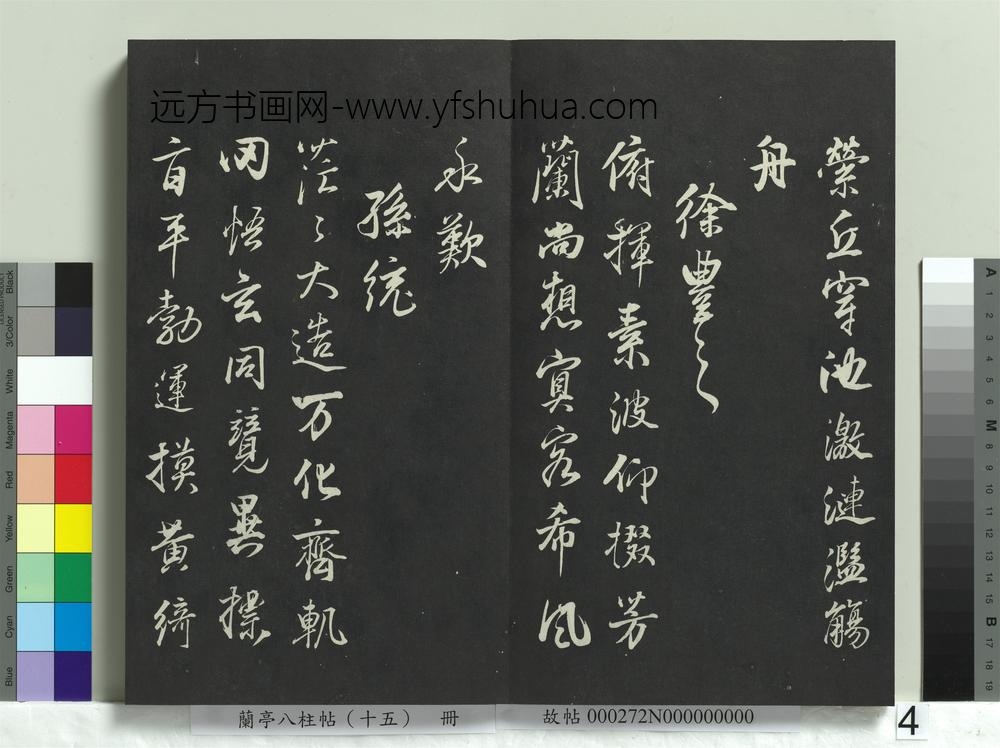 远方书画网-www.yfshuhua.com
縈丘穿池激漣濫觴
舟
徐豊之
俯揮素波仰掇芳
蘭尚想冥客希風
永歎
孫統
茫〻大造万化齊軌
罔悟玄同競異摽
旨平勃運摸黃綺
蘭亭八柱帖（十五） 冊
故帖 000272N000000000
4
Black
3/Color
White
Magenta
Red
Yellow
Green
Cyan
Blue
A
1
2
3
4
5
6
M
8
9
10
11
12
13
14
15
B
17
18
19